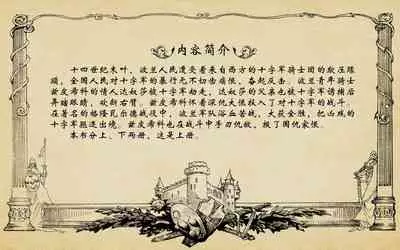 内容简介
十四世纪末叶，波兰人民遭受着来自西方的十字军骑士团的欺压蹂
躏，全国人民对十字军的暴行无不切齿痛恨，奋起反击。波兰青年骑士
兹皮希科的情人达奴莎被十字军劫走，达奴莎的父亲也被十字军诱捕后
弄瞎眼睛，砍断右臂。兹皮希科怀着深仇大恨投入了对十字军的战斗。
在著名的格隆瓦尔德战役中，波兰军队浴血苦战，大获全胜，把凶残的
十字军驱逐出境。兹皮希科也在战斗中手刃仇敌，报了国仇家恨。
本书分上、下两册，这是上册。